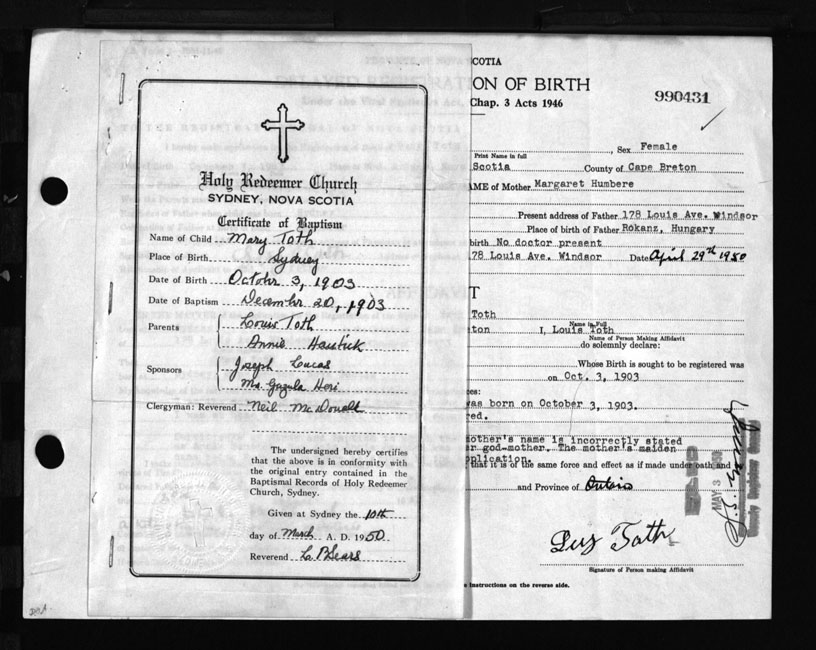 Holy Redeemer Church
SYDNEY, NOVA SCOTIA
Certificate of Baptism
Name of Child Mary Toth
Place of Birth Sydney
Date of Birth October 3, 1903
Date of Baptism December 20, 1903
Parents Louis Toth
Annie
Sponsors Joseph Lucas
Mrs Hori
Clergyman: Reverend Neil McDonald
The undersigned hereby certifies
that the above is in conformity with
the original entry contained in the
Baptismal Records of Holy Redeemer
Church, Sydney.
Given at Sydney the 10th
day of March A. D. 1950
Reverend
SCOTIA
ON OF BIRTH
Chap. 3 Acts 1946
990431
Sex Female
Print Name in full
Scotia County of Cape Breton
AME of Mother Margaret Humbere
Present address of Father 178 Louis Ave. Windsor
Place of birth of Father Rokanz, Hungary
birth No doctor present
78 Louis Ave. Windsor Date April 29th 1950
T
Toth
Name in Full
ton I, Louis Toth
Name of Person Making Affidavit
do solemnly declare:
Whose Birth is sought to be registered was
on Oct. 3, 1903
ces:
was born on October 3, 1903.
red.
mother's name is incorrectly stated
er god-mother. The mother's maiden
pplication.
that it is of the same force and effect as if made under oath and
and Province of Ontario
MAY 3
Toth
Signature of Person making Affidavit
instructions on the reverse side.